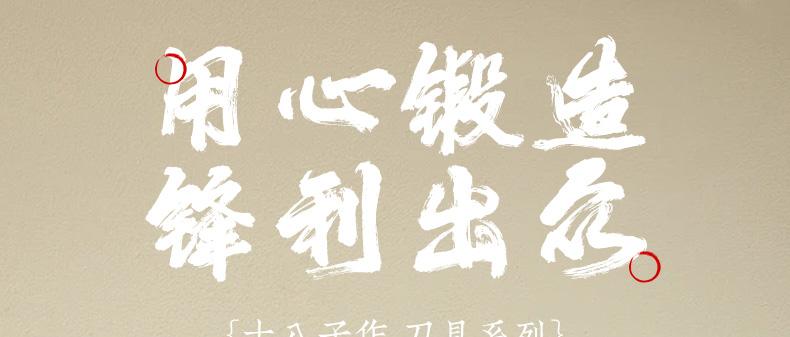 用心锻造
锋利出众
{十八子作 刀具系列}